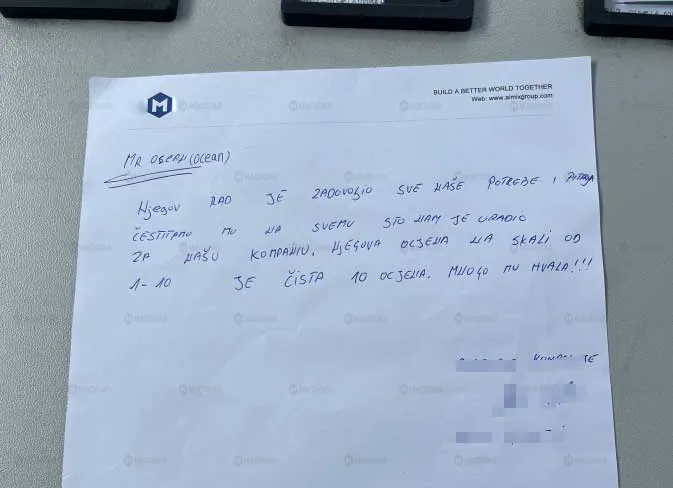 M
BUILD A BETTER WORLD TOGETHER
Web: www.aimixgroup.com
MR OSEAN (OCEAN)
NJEGOV RAD JE ZADOVOLJIO SVE NAŠE POTREBE I PITANJA
ČESTITAMO MU NA SVEMU ŠTO NAM JE URADIO
ZA NAŠU KOMPANIJU. NJEGOVA OCJENA NA SKALI OD
1-10 JE ČISTA 10 OCJENA. MNOGO MU HVALA!!!